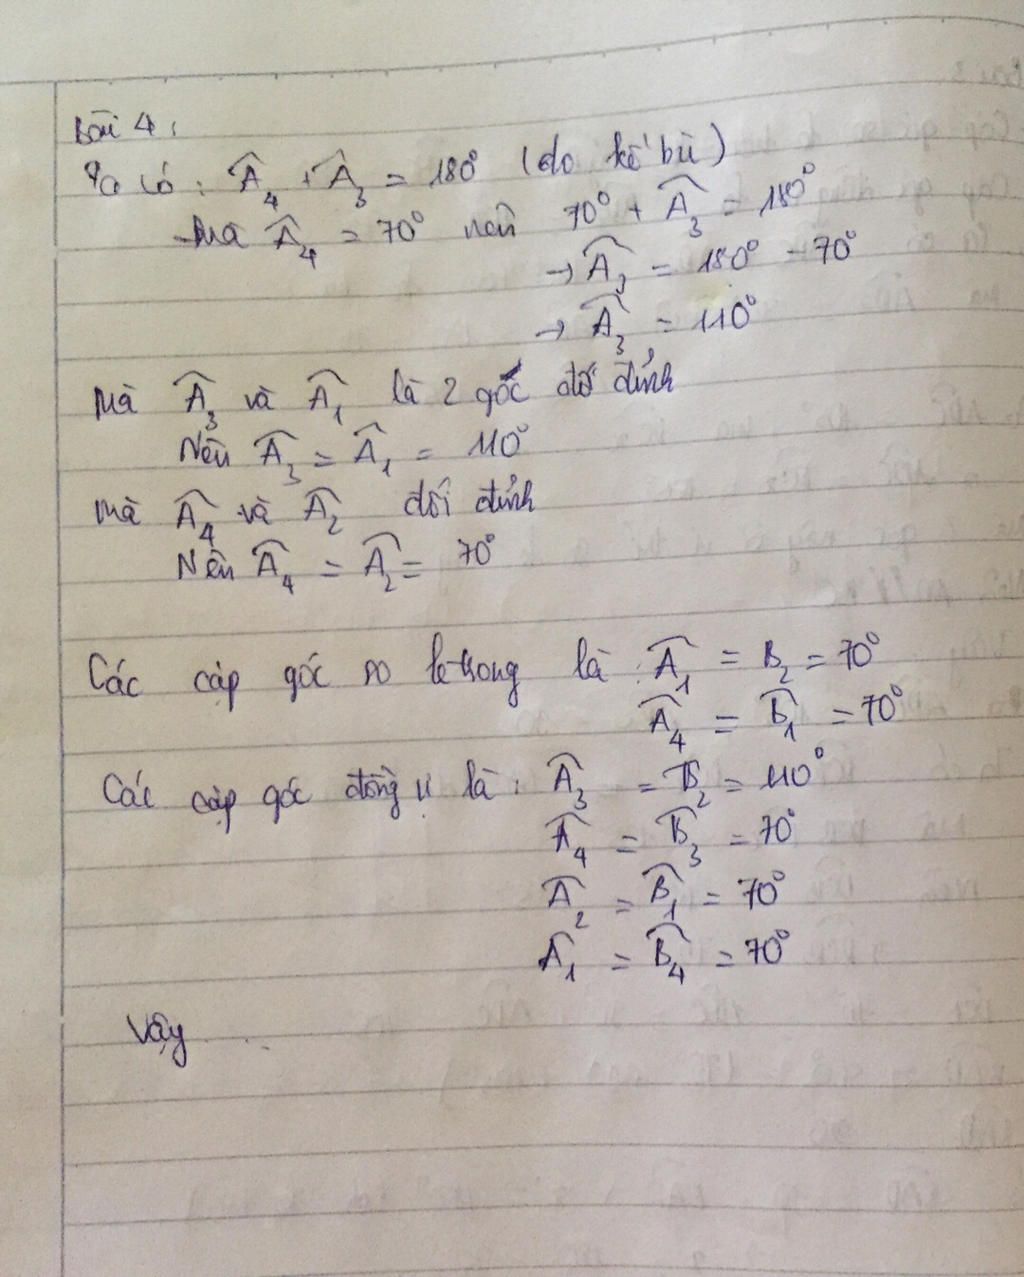 Bài 4:
Ta có: Â₄ + Â₃ = 180° (do kề bù)
Mà Â₄ = 70° nên 70° + Â₃ = 180°
→ Â₃ = 180° - 70°
→ Â₃ = 110°
Mà Â₃ và Â₁ là 2 góc đối đỉnh
Nên Â₃ = Â₁ = 110°
Mà Â₄ và Â₂ đối đỉnh
Nên Â₄ = Â₂ = 70°
Các cặp góc so le trong là: Â₁ = B₂ = 70°
Â₄ = B̂₁ = 70°
Các cặp góc đồng vị là: Â₃ = B̂₂ = 110°
Â₄ = B̂₃ = 70°
Â₂ = B̂₁ = 70°
Â₁ = B̂₄ = 70°
Vậy ....